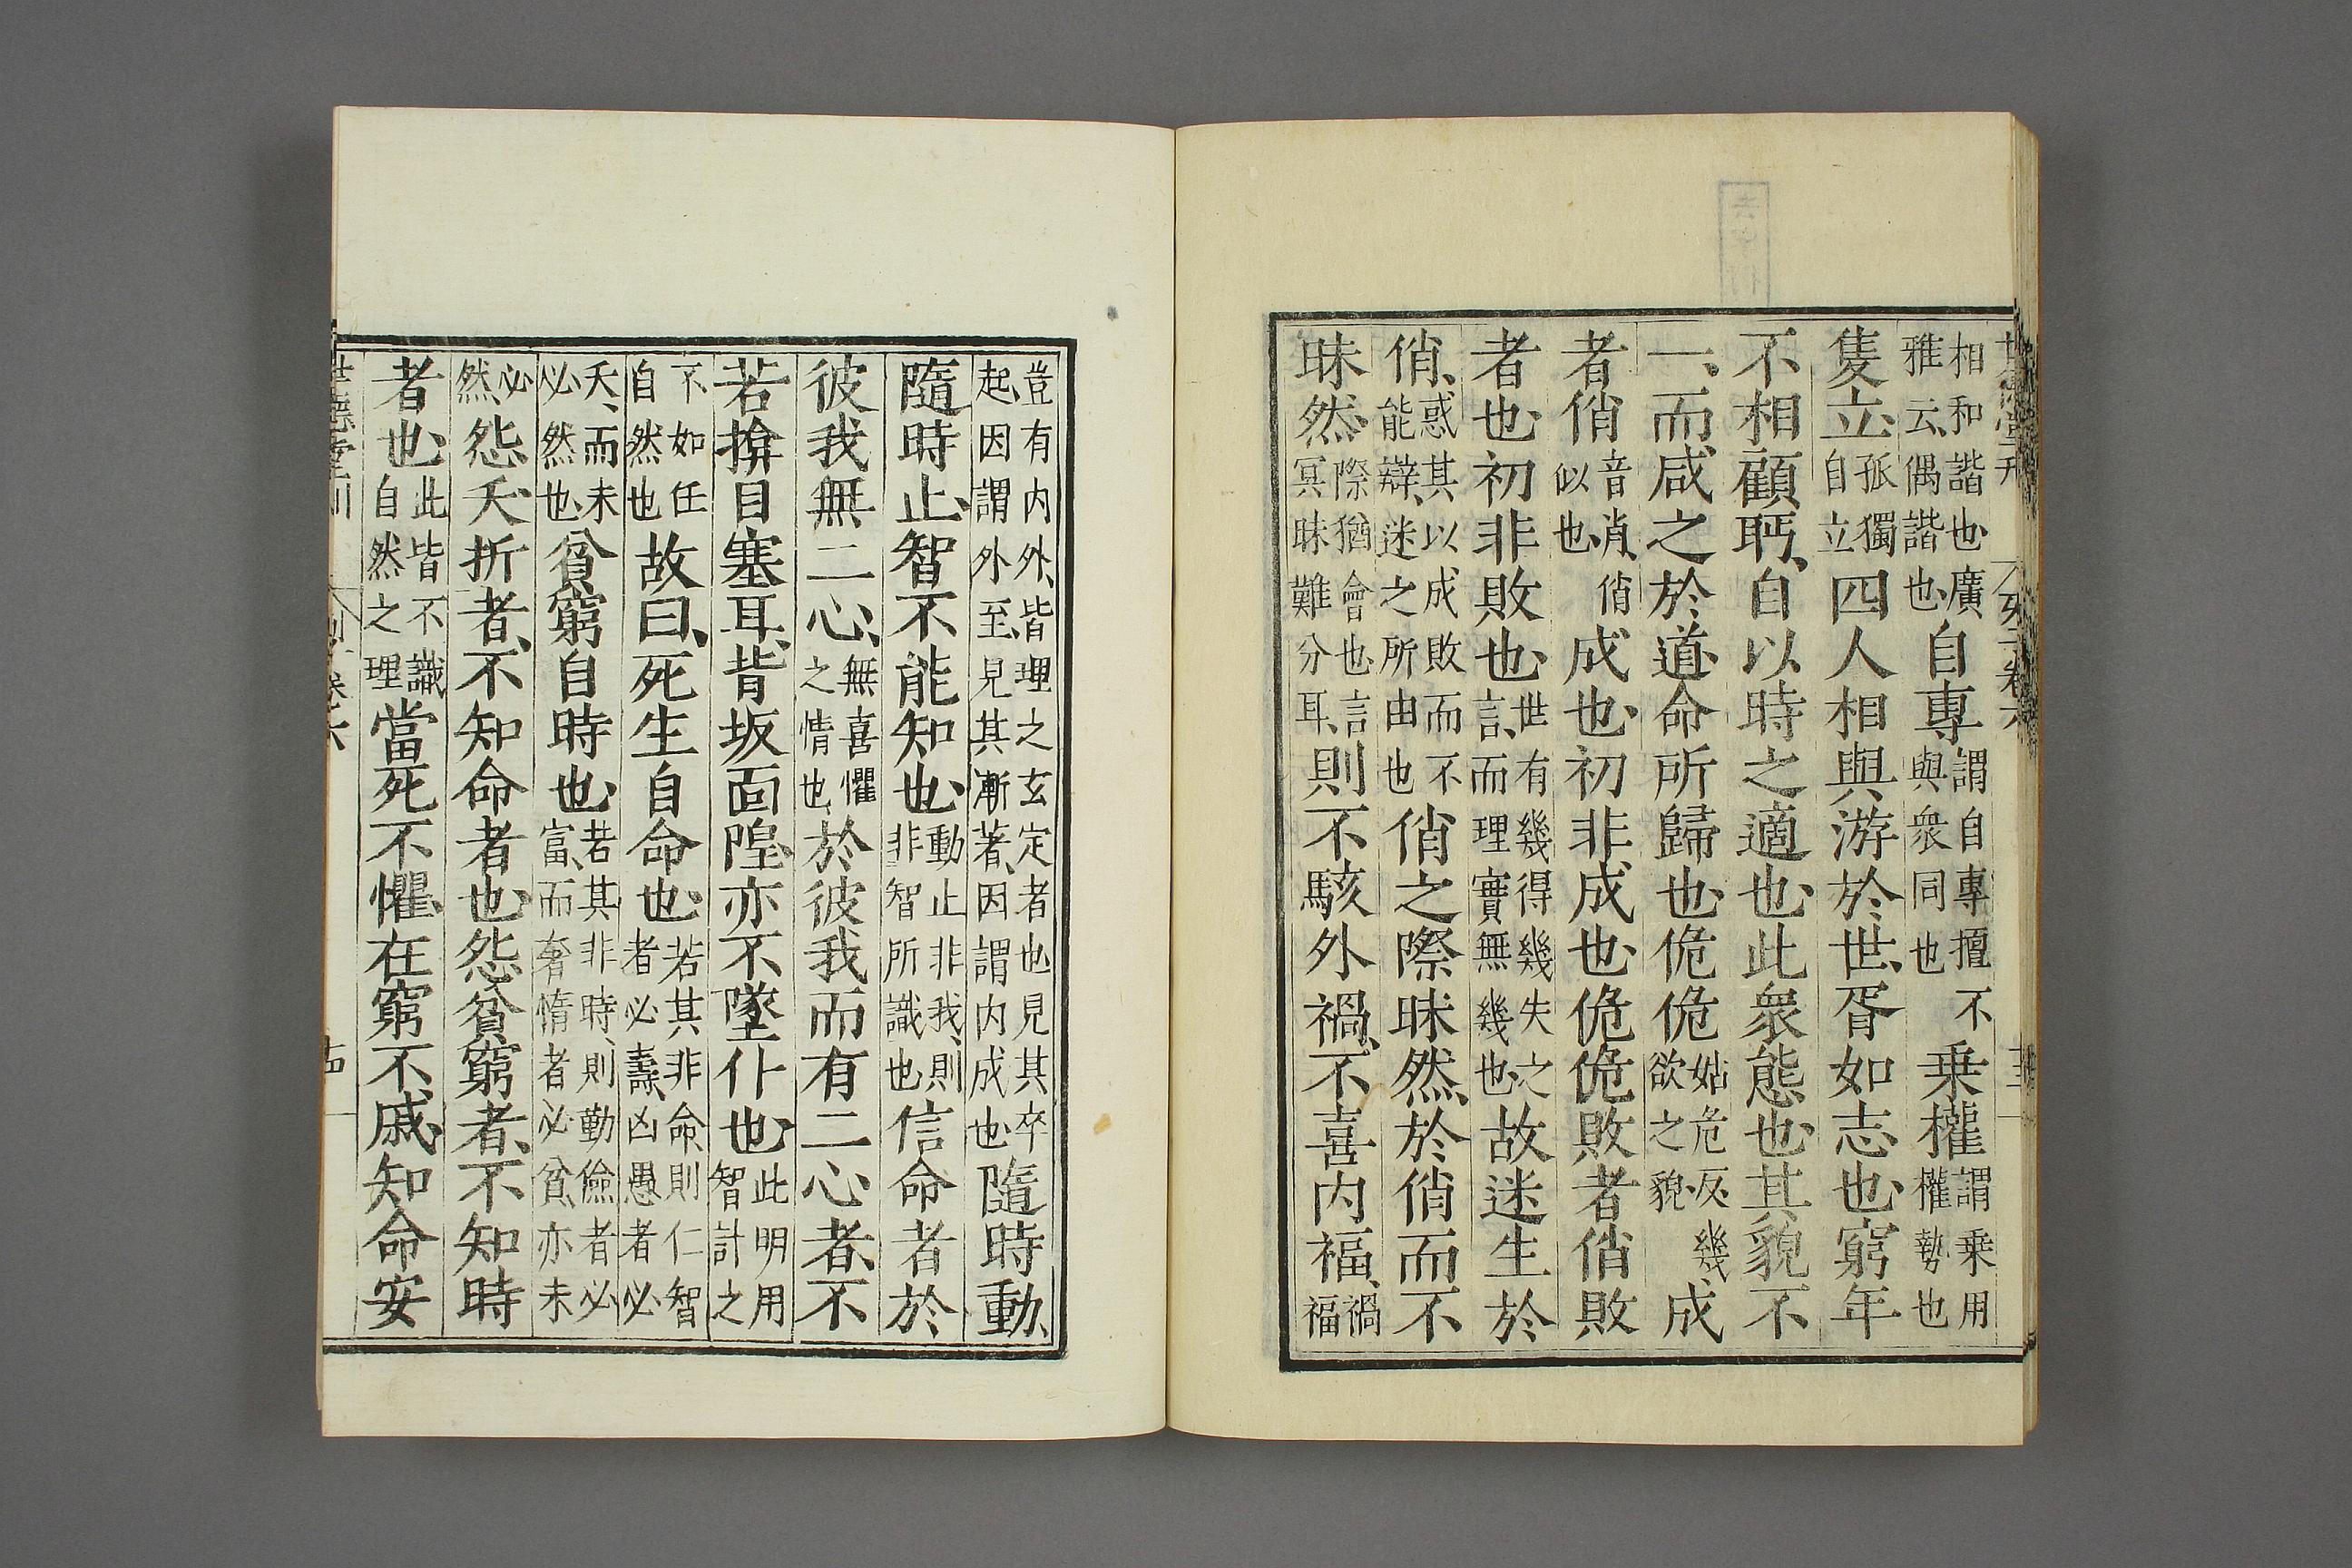 世德堂刊 列子卷六 十三
相和諧也廣雅云偶諧也自專謂自專擅不與衆同也乗權謂乗用權勢也
隻立孤獨自立四人相與游於世胥如志也窮年
不相顧眄自以時之適也此衆態也其貌不
一而咸之於道命所歸也佹佹姑危反幾欲之貌成
者俏音肖俏似也成也初非成也佹佹敗者俏敗
者也初非敗也世有幾得幾失之言而理實無幾也故迷生於
俏惑其以成敗而不能辯迷之所由也俏之際昧然於俏而不
昧然際猶會也言冥昧難分耳則不駭外禍不喜内福禍福
豈有内外皆理之玄定者也見其卒起因謂外至見其漸著因謂内成也隨時動
隨時止智不能知也動止非我則非智所識也信命者於
彼我無二心無喜懼之情也於彼我而有二心者不
若揜目塞耳背坂面隍亦不墜仆也此明用智計之
不如任自然也故曰死生自命也若其非命則仁智者必壽凶愚者必
夭而未必然也貧窮自時也若其非時則勤儉者必富而奢惰者必貧亦未
必然怨夭折者不知命者也怨貧窮者不知時
者也此皆不識自然之理當死不懼在窮不戚知命安
世德堂刊 列子卷六 十四